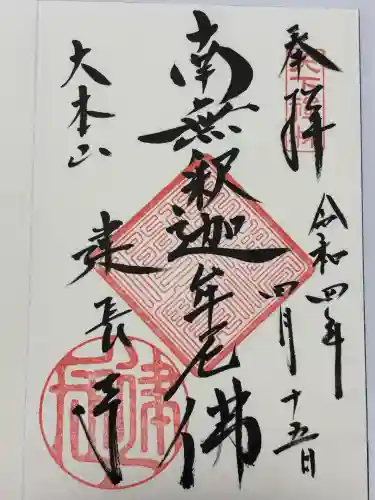 奉拝
令和四年
四月十五日
南無釈迦牟尼佛
大本山
建長寺